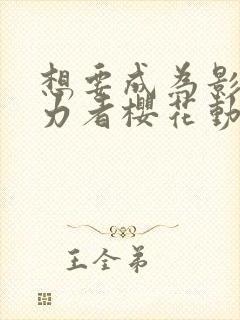 想要成为影
力者櫻花動
王全弟